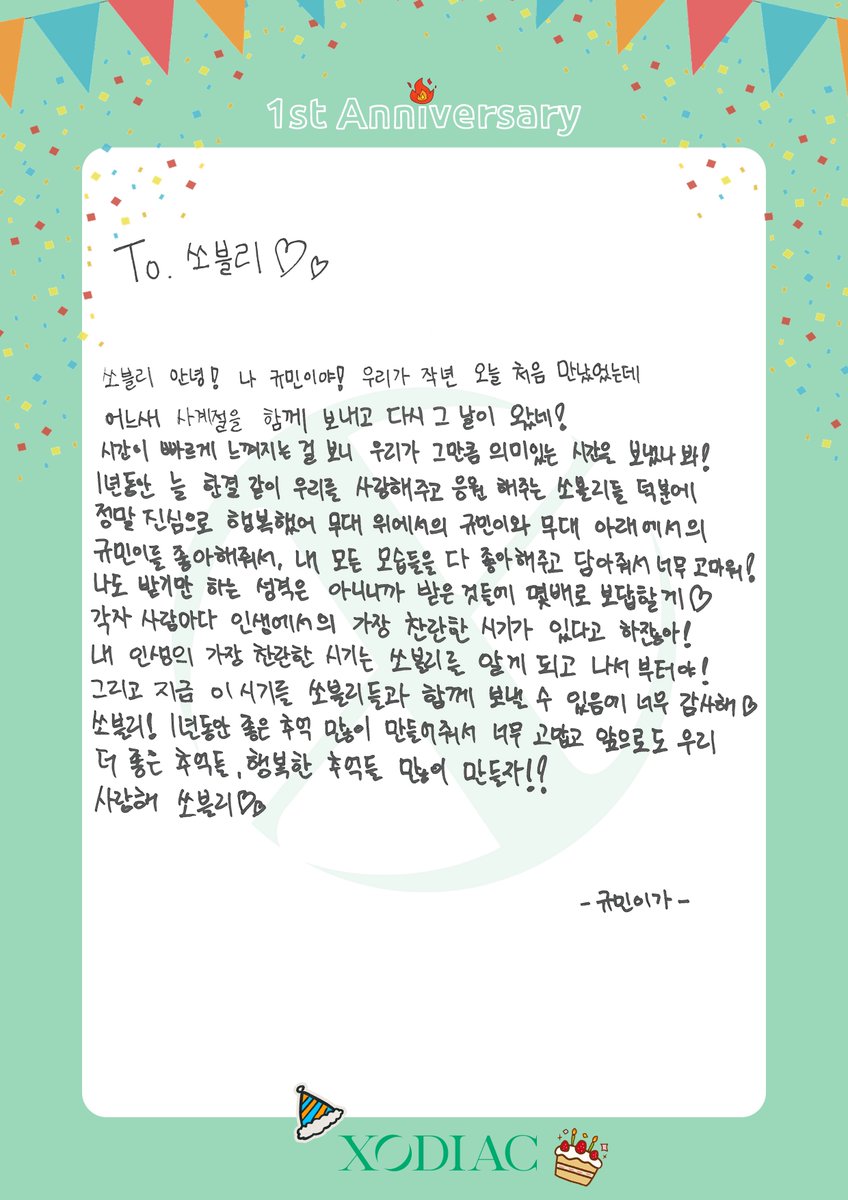 1st Anniversary
To. 쏘블리♡♡
쏘블리 안녕! 나 규민이야! 우리가 작년 오늘 처음 만났었는데
어느새 사계절을 함께 보내고 다시 그 날이 왔네!
시간이 빠르게 느껴지는 걸 보니 우리가 그만큼 의미있는 시간을 보냈나 봐!
1년동안 늘 한결 같이 우리를 사랑해주고 응원 해주는 쏘블리들 덕분에
정말 진심으로 행복했어 무대 위에서의 규민이와 무대 아래에서의
규민이를 좋아해줘서, 내 모든 모습들을 다 좋아해주고 담아줘서 너무 고마워!
나도 받기만 하는 성격은 아니니까 받은 것들에 몇배로 보답할게♡
각자 사람마다 인생에서의 가장 찬란한 시기가 있다고 하잖아!
내 인생의 가장 찬란한 시기는 쏘블리를 알게 되고 나서부터야!
그리고 지금 이 시기를 쏘블리들과 함께 보낼 수 있음에 너무 감사해♡
쏘블리! 1년동안 좋은 추억 많이 만들어줘서 너무 고맙고 앞으로도 우리
더 좋은 추억들, 행복한 추억들 많이 만들자!!
사랑해 쏘블리♡♡
- 규민이가 -
XODIAC